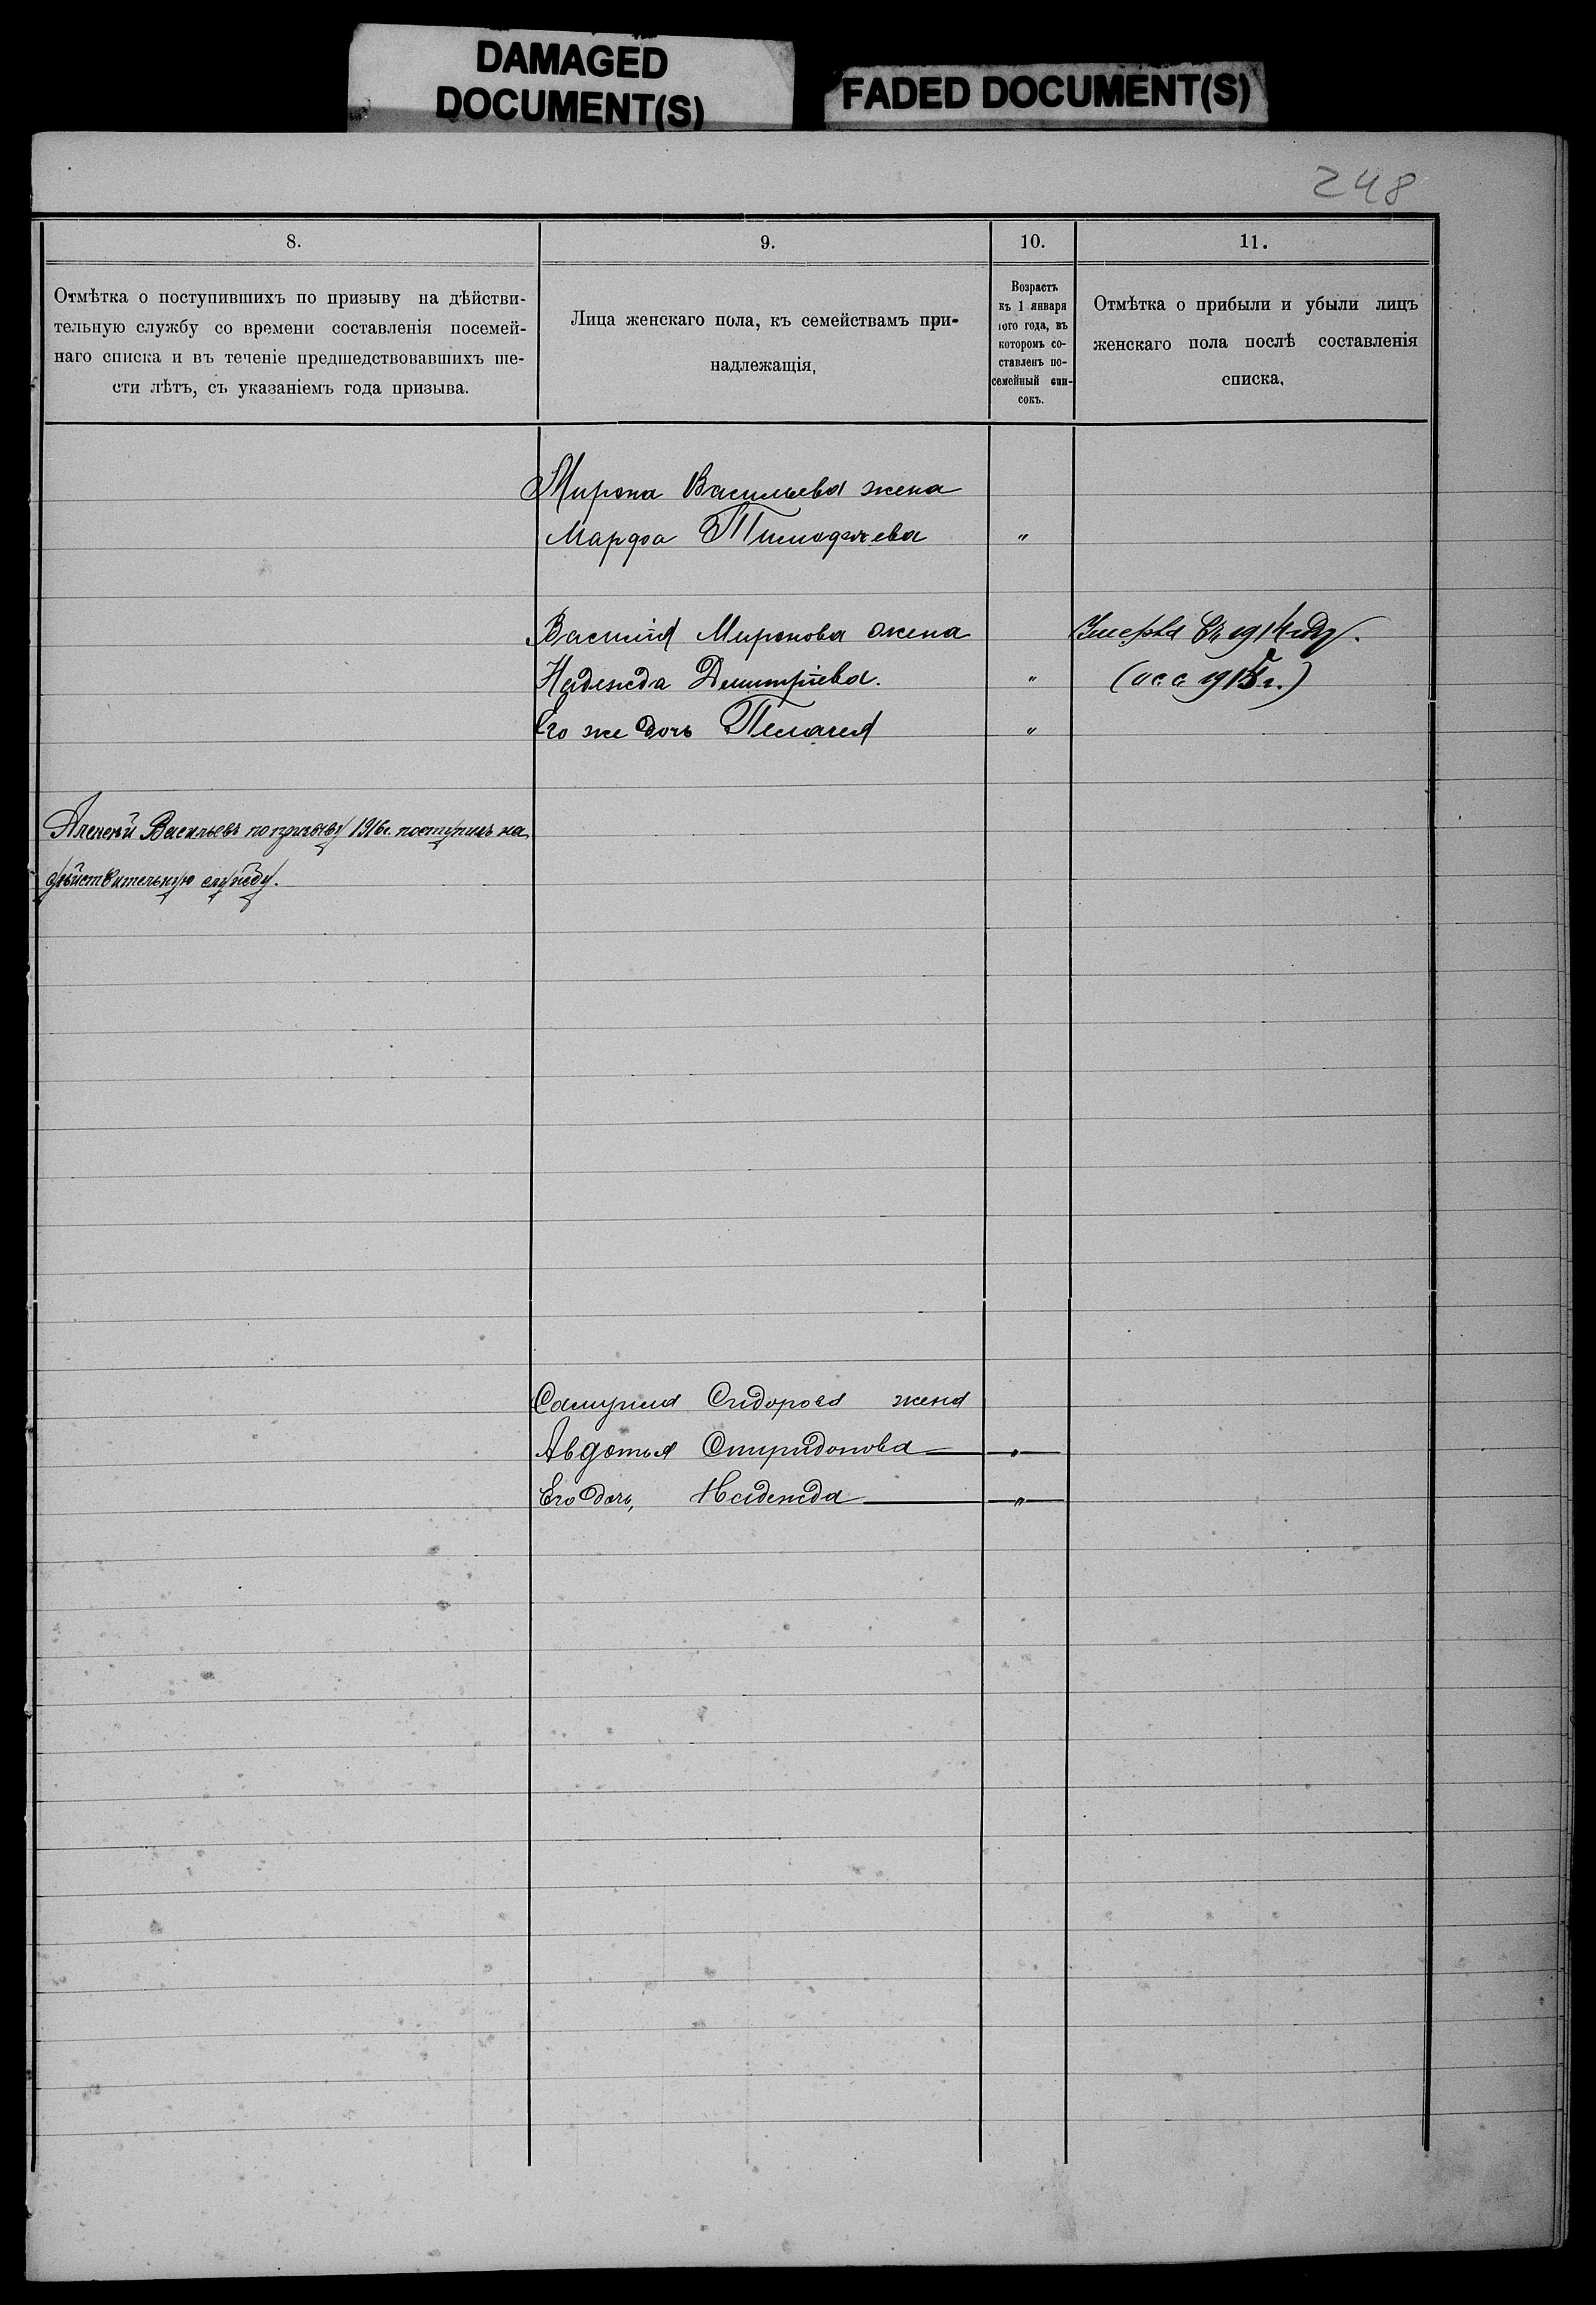 DAMAGED
DOCUMENT(S)
FADED DOCUMENT(S)
248
8.
9.
10.
11.
Отмѣтка о поступившихъ по призыву на дѣйстви-
тельную службу со времени составленія посемей-
наго списка и въ теченіе предшедствовавшихъ ше-
сти лѣтъ, съ указаніемъ года призыва.
Лица женскаго пола, къ семействамъ при-
надлежащія,
Возрастъ
къ 1 января
того года, въ
которомъ со-
ставленъ по-
семейный спи-
сокъ.
Отмѣтка о прибыли и убыли лицъ
женскаго пола послѣ составленія
списка.
Мирона Васильева жена
Марфа Тимофѣева "
Василія Миронова жена
Умерла въ 1914 году.
Надежда Димитріева. "
1915 г.)
Его же дочь Пелагея "
Алексѣй Васильевъ по призыву 1916 г. поступилъ на
дѣйствительную службу.
Самуила Сидорова жена
Авдотья Спиридонова "
Его дочь, Надежда "